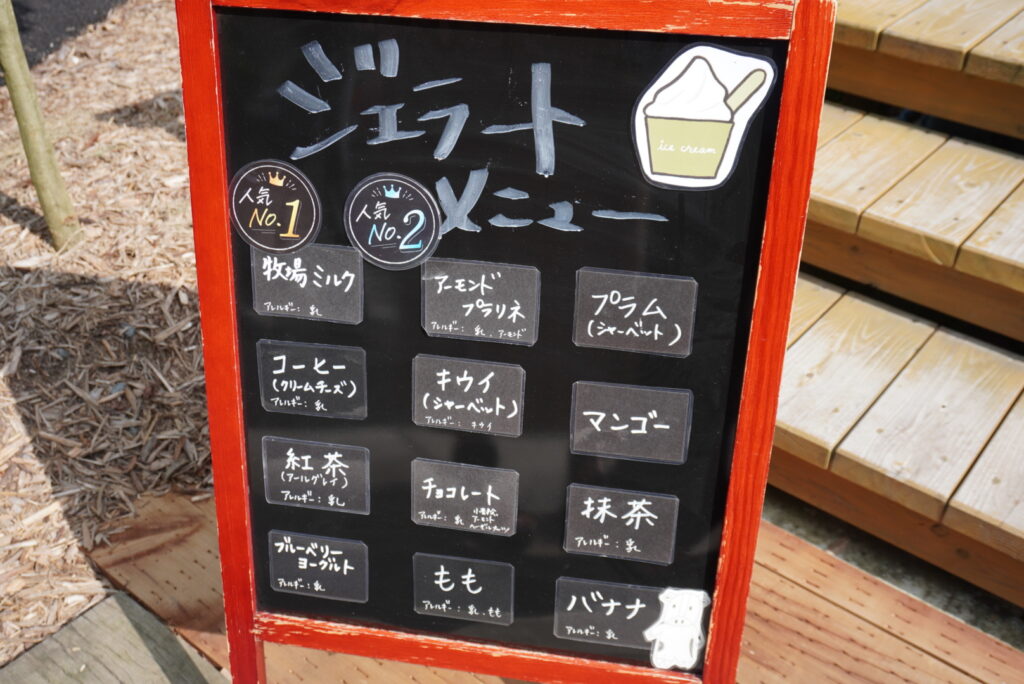 ジェラート
メニュー
ice cream
人気
No.1
人気
No.2
牧場ミルク
アレルギー：乳
アーモンド
プラリネ
アレルギー：乳、アーモンド
プラム
(シャーベット)
コーヒー
(クリームチーズ)
アレルギー：乳
キウイ
(シャーベット)
アレルギー：キウイ
マンゴー
紅茶
(アールグレイ)
アレルギー：乳
チョコレート
アレルギー：乳
アーモンド
抹茶
アレルギー：乳
ブルーベリー
ヨーグルト
アレルギー：乳
もも
アレルギー：乳、もも
バナナ
アレルギー：乳